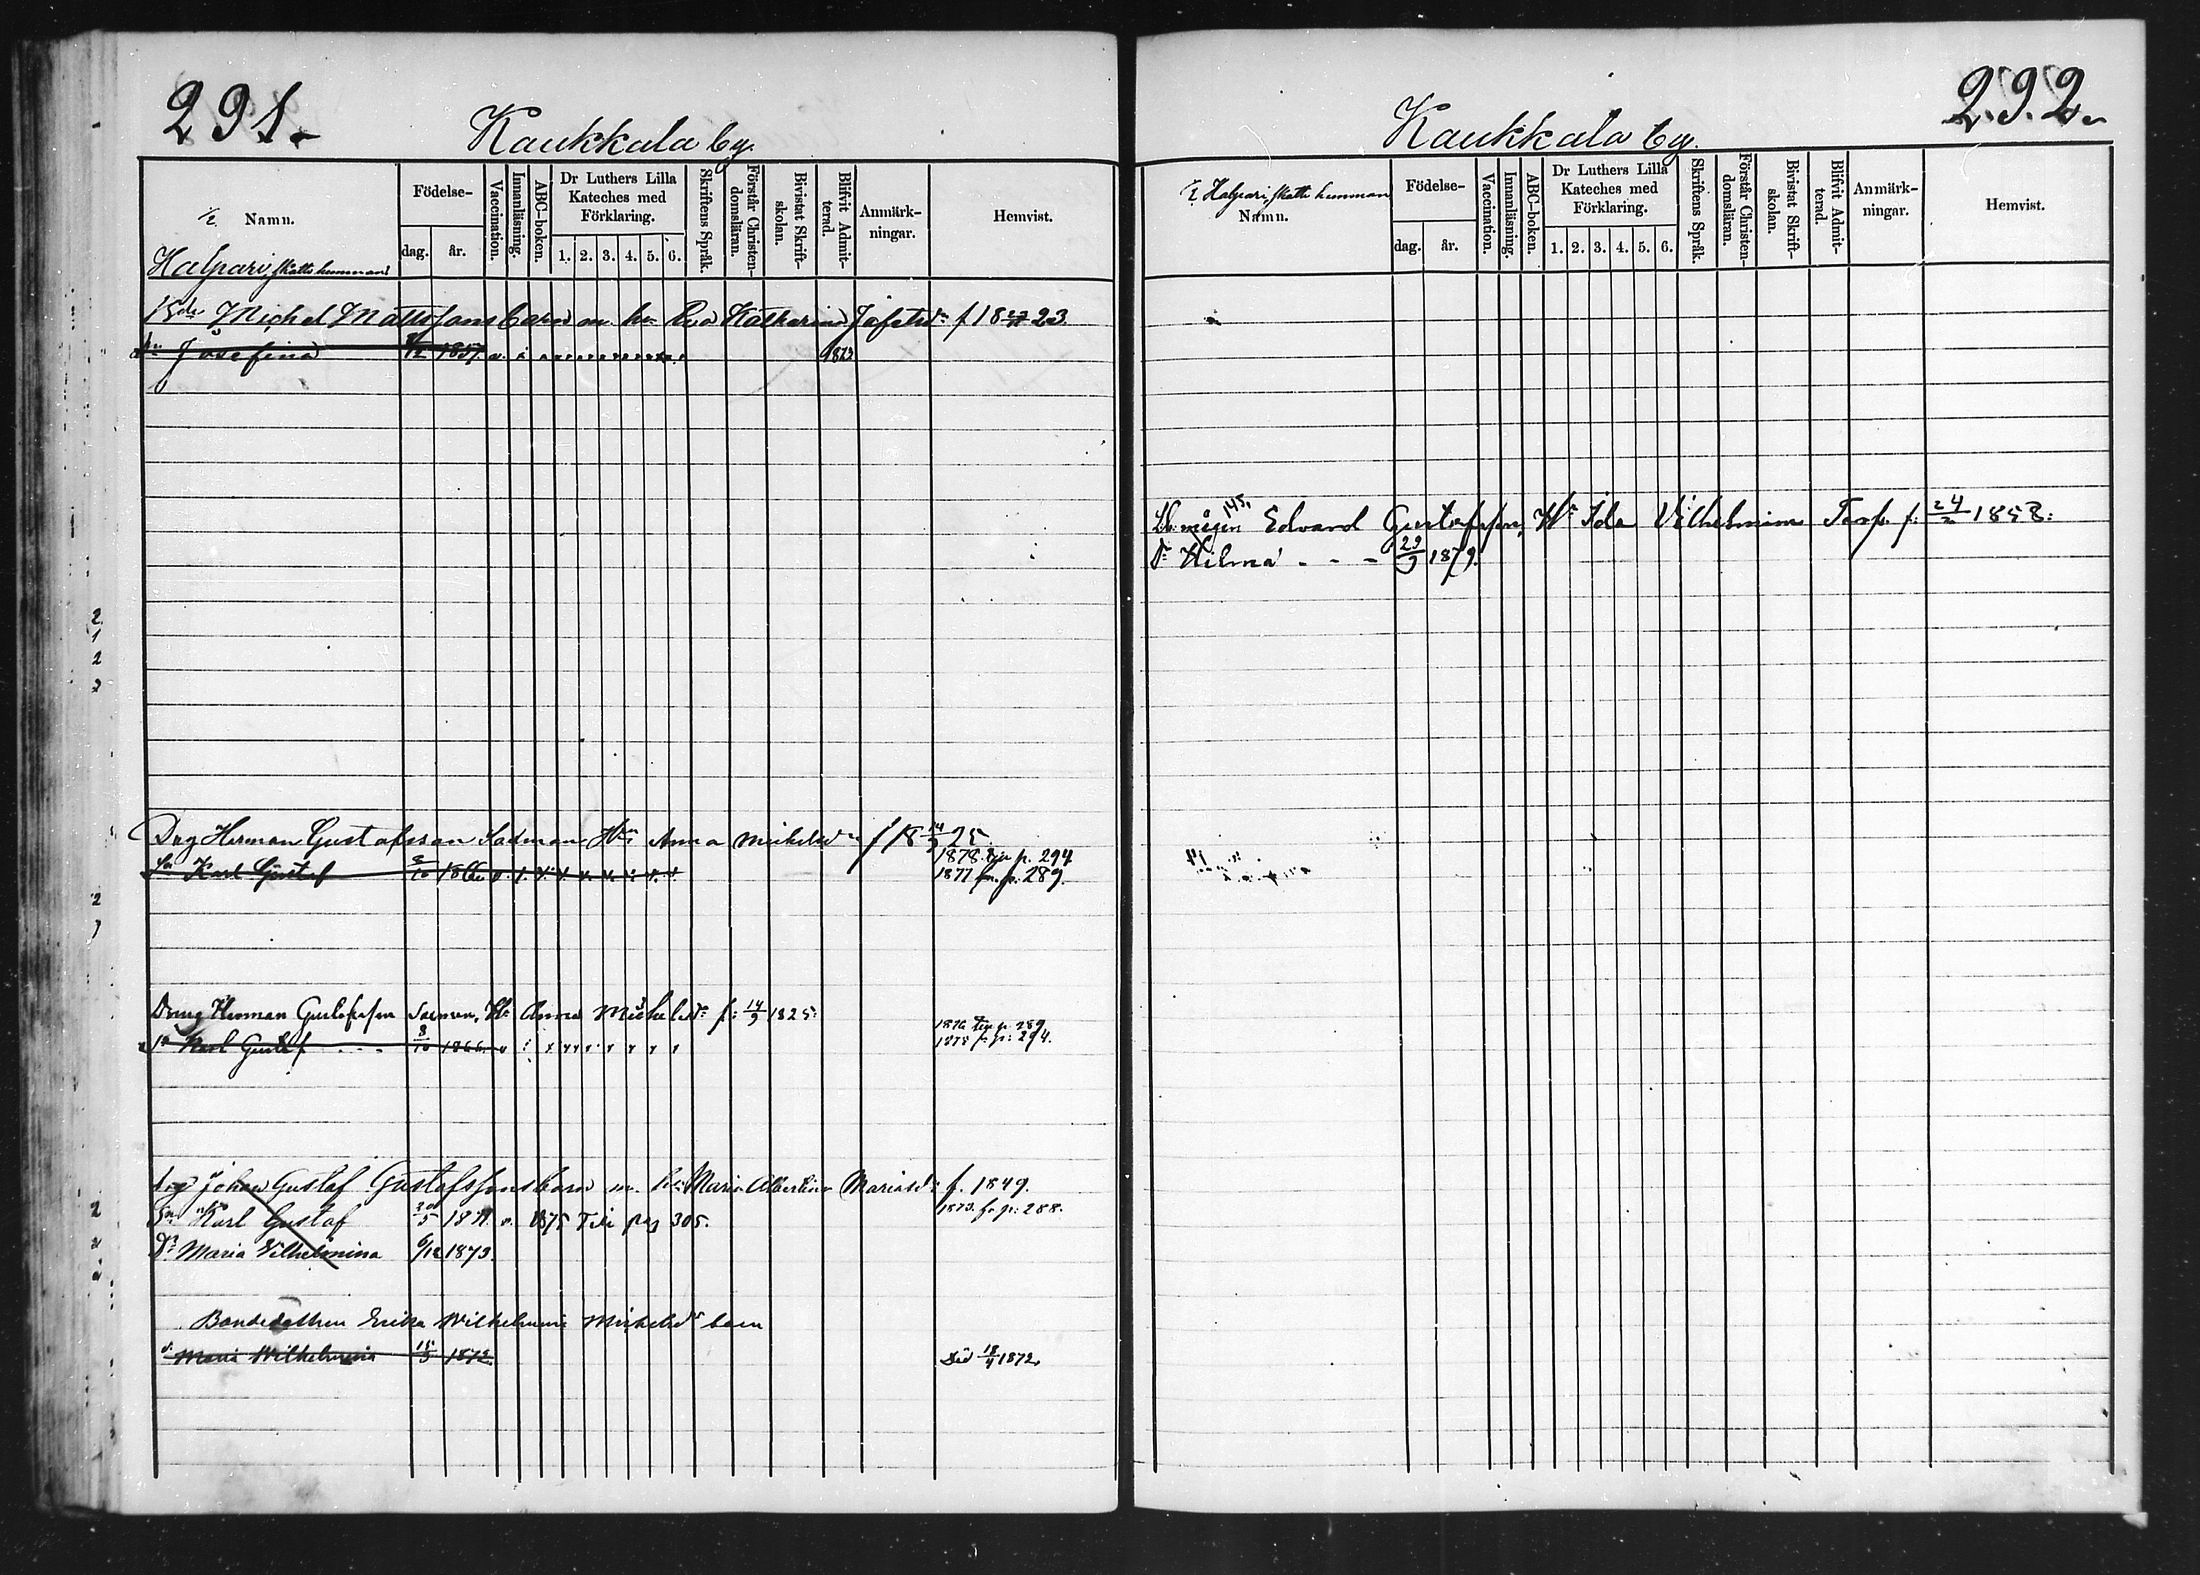 291.
Kaukkala by.
Namn.
Födelse-
dag. år.
Vaccination.
Innanläsning.
ABC-boken.
Dr Luthers Lilla
Kateches med
Förklaring.
1. 2. 3. 4. 5. 6.
Skriftens Språk.
Förstår Christen-
domsläran.
Bivistat Skrift-
skolan.
Blifvit Admit-
terad.
Anmärk-
ningar.
Hemvist.
Halpari, skatte hemman
Bde Michel Mattssons barn m. hu Eva Katharina Jofsdr f 18 23.
Josefina 1857 1873
Drg Herman Gustafsson Hu Anna Mickelsdr f 18 14/9 25.
1878 till p. 294
Sn Karl Gustaf 8/10 1866 v.
1877 fr. p. 289.
Dreng Herman Gustafsson Hu Anna Mickelsdr f: 14/9 1825:
1876 till p. 289
Sn Karl Gustaf - - - 8/10 1866 v
1878 fr p: 294.
drg Johan Gustaf Gustafssons barn m. hu Maria Albertina Mariasdr f. 1849.
1873. fr p: 288.
Sn Karl Gustaf 20/5 1871 v. 1875 Till pag 305.
Dr Maria Vilhelmina 6/12 1873.
Bondedottren Erika Wilhelmina Mickelsdr barn
dr Maria Wilhelmina 15/3 1872.
Död 18/4 1872.
292.
Kaukkala by.
Halpari, skatte hemman
Namn.
Födelse-
dag. år.
Vaccination.
Innanläsning.
ABC-boken.
Dr Luthers Lilla
Kateches med
Förklaring.
1. 2. 3. 4. 5. 6.
Skriftens Språk.
Förstår Christen-
domsläran.
Bivistat Skrift-
skolan.
Blifvit Admit-
terad.
Anmärk-
ningar.
Hemvist.
145.
Edvard Gustafsson, Hu Ida Vilhelmina f: 24/2 1858:
Dr Hilma - - - 29/9 1879.